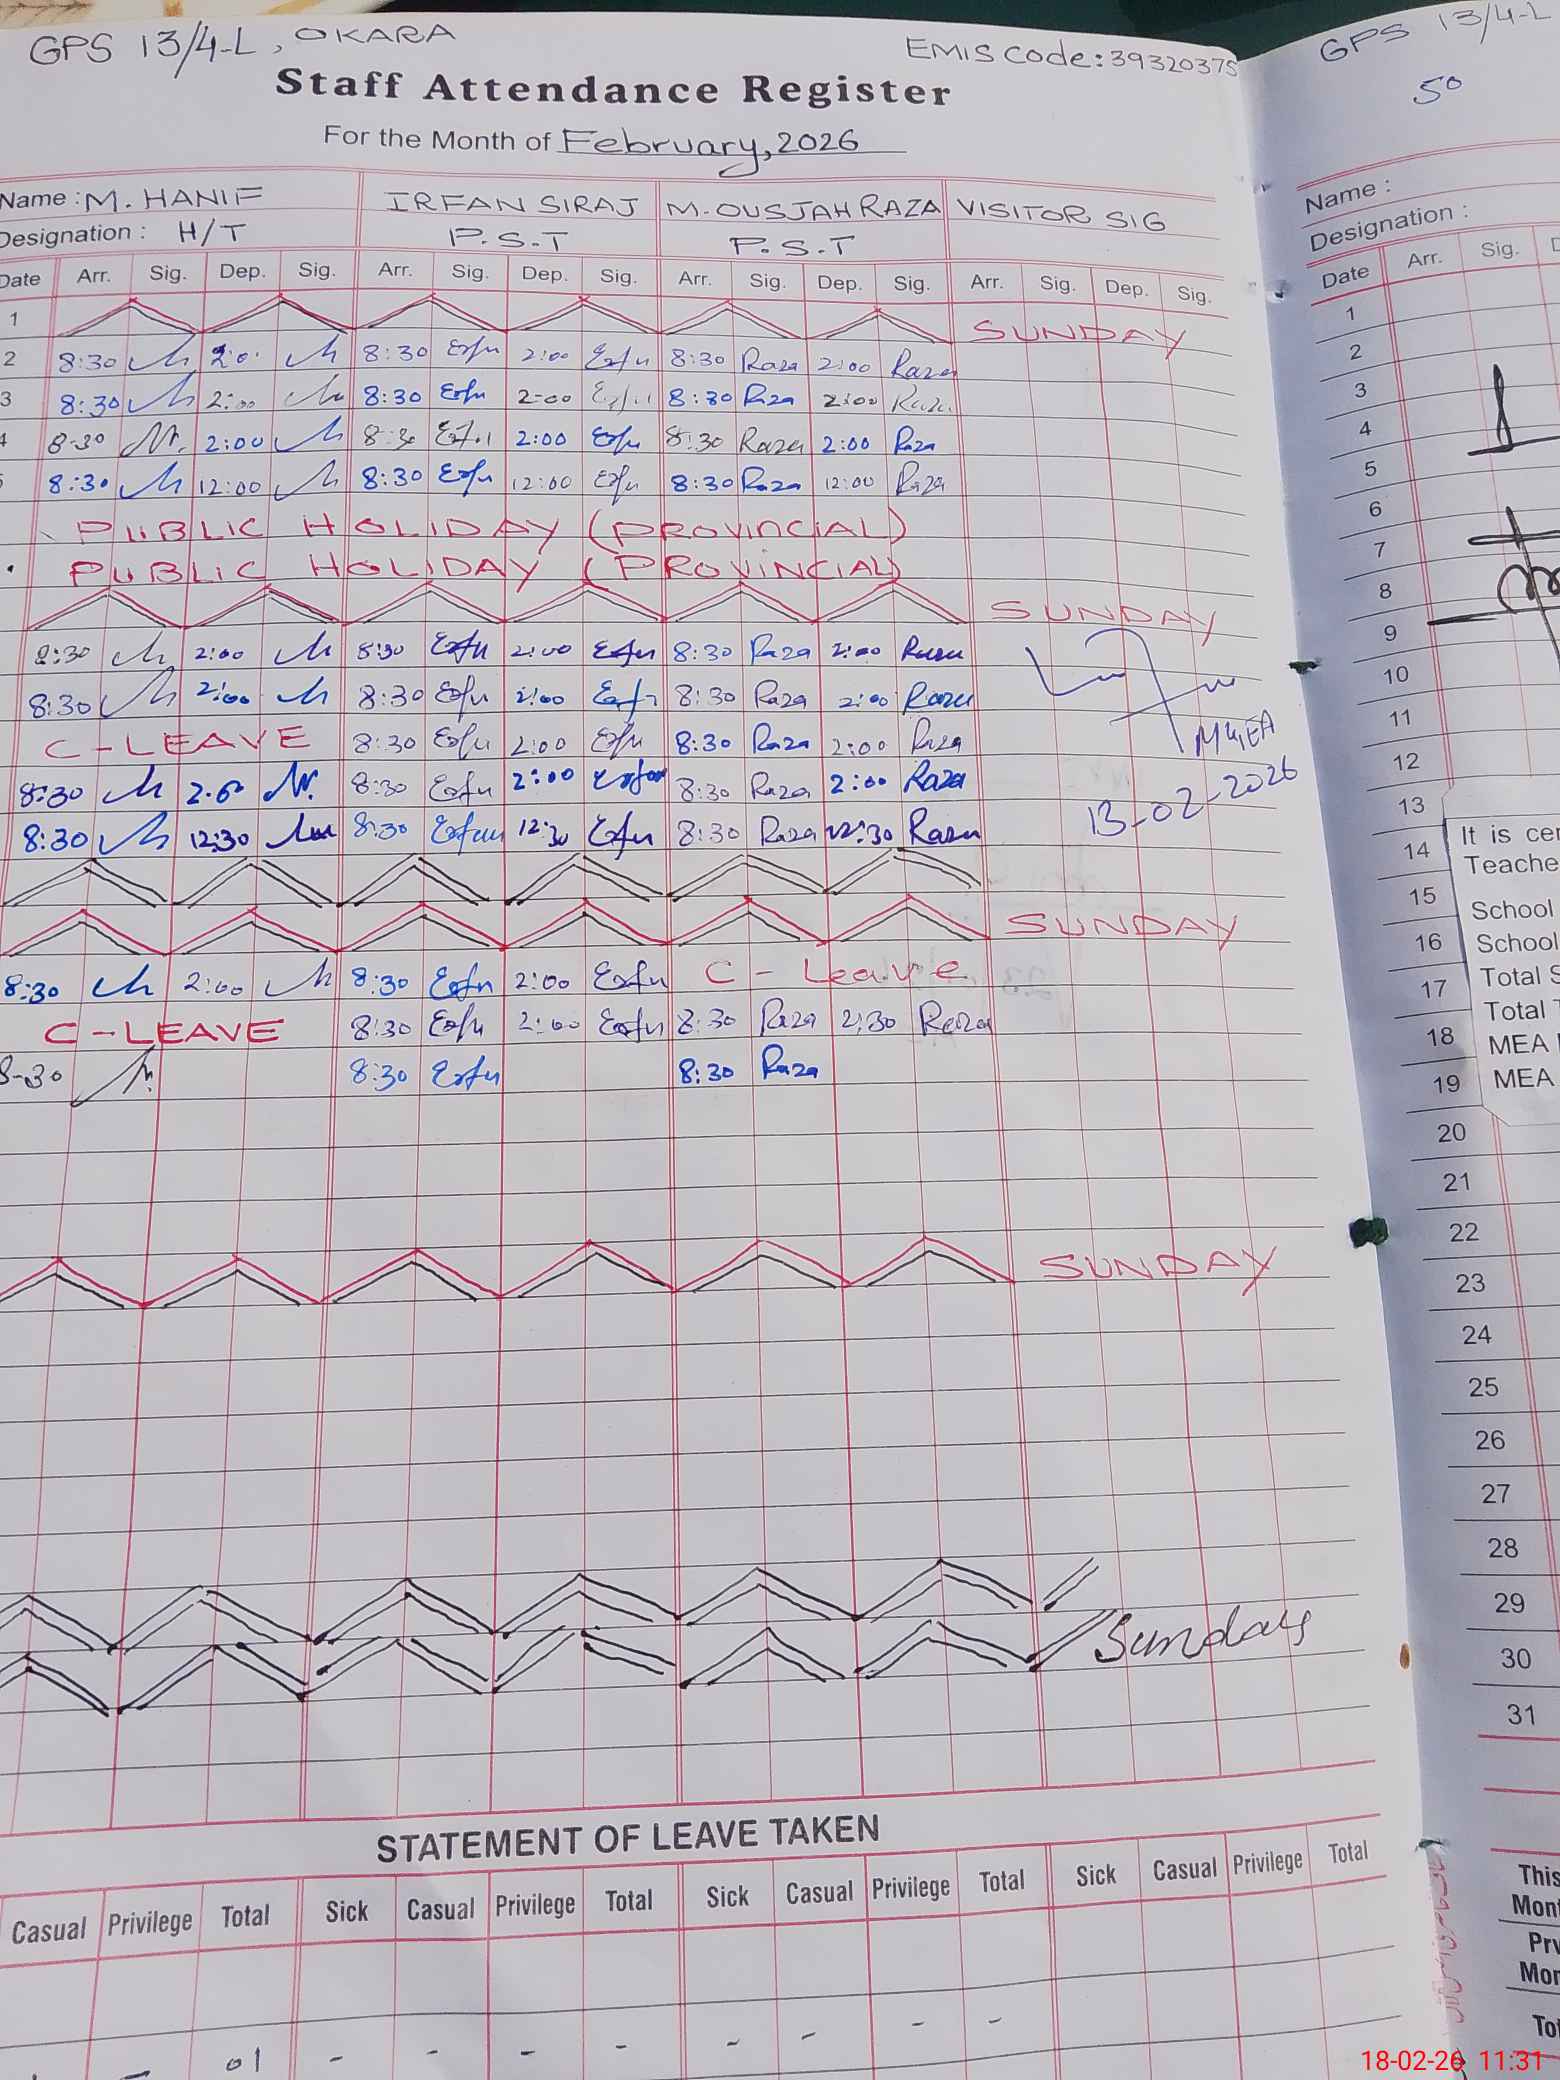 GPS 13/4-L, OKARA
EMIS Code: 39320375
Staff Attendance Register
For the Month of February, 2026
Name : M. HANIF IRFAN SIRAJ M. OUSJAH RAZA VISITOR SIG
Designation : H/T P.S.T P.S.T
Date Arr. Sig. Dep. Sig. Arr. Sig. Dep. Sig. Arr. Sig. Dep. Sig. Arr. Sig. Dep. Sig.
1 SUNDAY
2 8:30 8:30 2:00 8:30 Raza 2:00 Raza
3 8:30 2:00 8:30 2-00 8:30 Raza 2:00 Raza
4 8-30 2:00 8:30 2:00 8:30 Raza 2:00 Raza
8:30 12:00 8:30 12:00 8:30 Raza 12:00 Raza
PUBLIC HOLIDAY (PROVINCIAL)
PUBLIC HOLIDAY (PROVINCIAL)
SUNDAY
8:30 2:00 8:30 2:00 8:30 Raza 2:00 Raza
8:30 2:00 8:30 2:00 8:30 Raza 2:00 Raza
C-LEAVE 8:30 2:00 8:30 Raza 2:00 Raza
8:30 8:30 2:00 8:30 Raza 2:00 Raza
8:30 12:30 8:30 12:30 8:30 Raza 12:30 Raza
13-02-2026
SUNDAY
8:30 2:00 8:30 2:00 C - Leave
C-LEAVE 8:30 2:00 8:30 Raza 2:30 Raza
8-30 8:30 8:30 Raza
SUNDAY
Sunday
STATEMENT OF LEAVE TAKEN
Casual Privilege Total Sick Casual Privilege Total Sick Casual Privilege Total Sick Casual Privilege Total
- 01 - - - - - - - -
GPS 13/4-L
50
Name :
Designation :
Date Arr. Sig.
1
2
3
4
5
6
7
8
9
10
11
12
13
14
15
16
17
18
19
20
21
22
23
24
25
26
27
28
29
30
31
It is cer
Teache
School
School
Total S
Total T
MEA
MEA
This
Mon
Prv
Mon
To
18-02-26 11:31